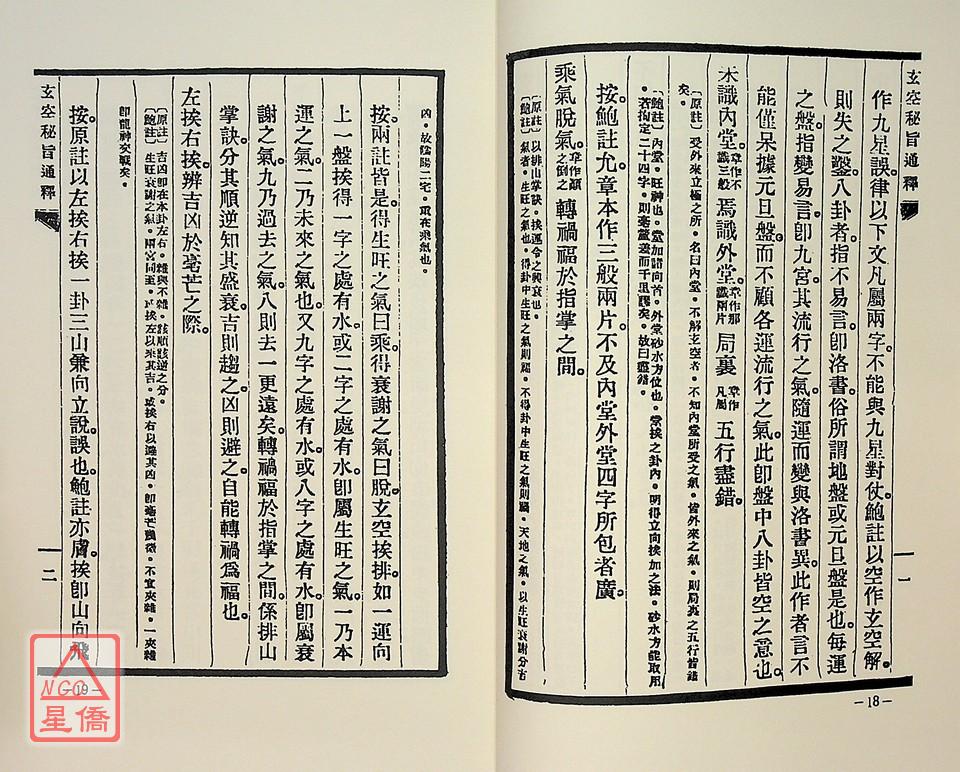 玄空秘旨通釋
一
作九星誤。律以下文凡屬兩字。不能與九星對仗。鮑註以空作玄空解。
則失之鑿。八卦者。指不易言。卽洛書。俗所謂地盤或元旦盤是也。每運
之盤。指變易言。卽九宮。其流行之氣。隨運而變。與洛書異。此作者言不
能僅呆據元旦盤。而不顧各運流行之氣。此卽盤中八卦皆空之意也。
未識內堂。章作不識三般 焉識外堂。章作那識兩片 局裏 章作凡屬 五行盡錯。
〔原註〕受外來立極之所。名曰內堂。不解玄空者。不知內堂所受之氣。皆外來之氣。則局裏之五行皆錯
矣。
〔鮑註〕內堂。旺神也。堂加諸向首。外堂砂水方位也。堂挨之卦內。明得立向挨加之法。砂水方能取用
。若拘定二十四字。則毫釐差而千里謬矣。故曰盡錯。
按。鮑註允。章本作三般兩片。不及內堂外堂四字所包者廣。
乘氣脫氣。章作顚之倒之 轉禍福於指掌之間。
〔原註〕以排山掌訣。挨運令之興衰也。
〔鮑註〕氣者。生旺之氣也。得卦中生旺之氣則福。不得卦中生旺之氣則禍。天地之氣。以生旺衰謝分吉
—18—
凶。故陰陽二宅。重在乘氣也。
按。兩註皆是。得生旺之氣曰乘。得衰謝之氣曰脫。玄空挨排。如一運向
上一盤挨得一字之處有水。或二字之處有水。卽屬生旺之氣。一乃本
運之氣。二乃未來之氣也。又九字之處有水。或八字之處有水。卽屬衰
謝之氣。九乃過去之氣。八則去一更遠矣。轉禍福於指掌之間。係排山
掌訣。分其順逆。知其盛衰。吉則趨之。凶則避之。自能轉禍爲福也。
左挨右挨。辨吉凶於毫芒之際。
〔原註〕吉凶卽在本卦左右。雜與不雜。該順該逆之分。
〔鮑註〕生旺衰謝之氣。兩宮同至。或挨左以來其吉。或挨右以避其凶。卽毫芒幾微。不宜夾雜。一夾雜
卽龍神交戰矣。
按。原註以左挨右挨一卦三山兼向立說。誤也。鮑註亦膚。挨卽山向飛
玄空秘旨通釋
二
—19—
NGO
星僑